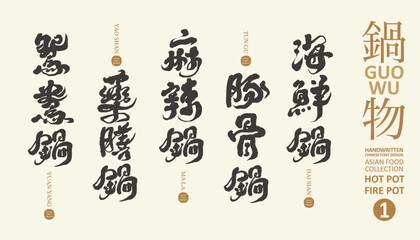 鍋物
GUO
WU
HANDWRITTEN
CHINESE FONT DESIGN
ASIAN FOOD
COLLECTION
HOT POT
FIRE POT
1
海鮮鍋
HAI XIAN
TUN GU
豚骨鍋
麻辣鍋
MA LA
YAO SHAN
藥膳鍋
鴛鴦鍋
YUAN YANG